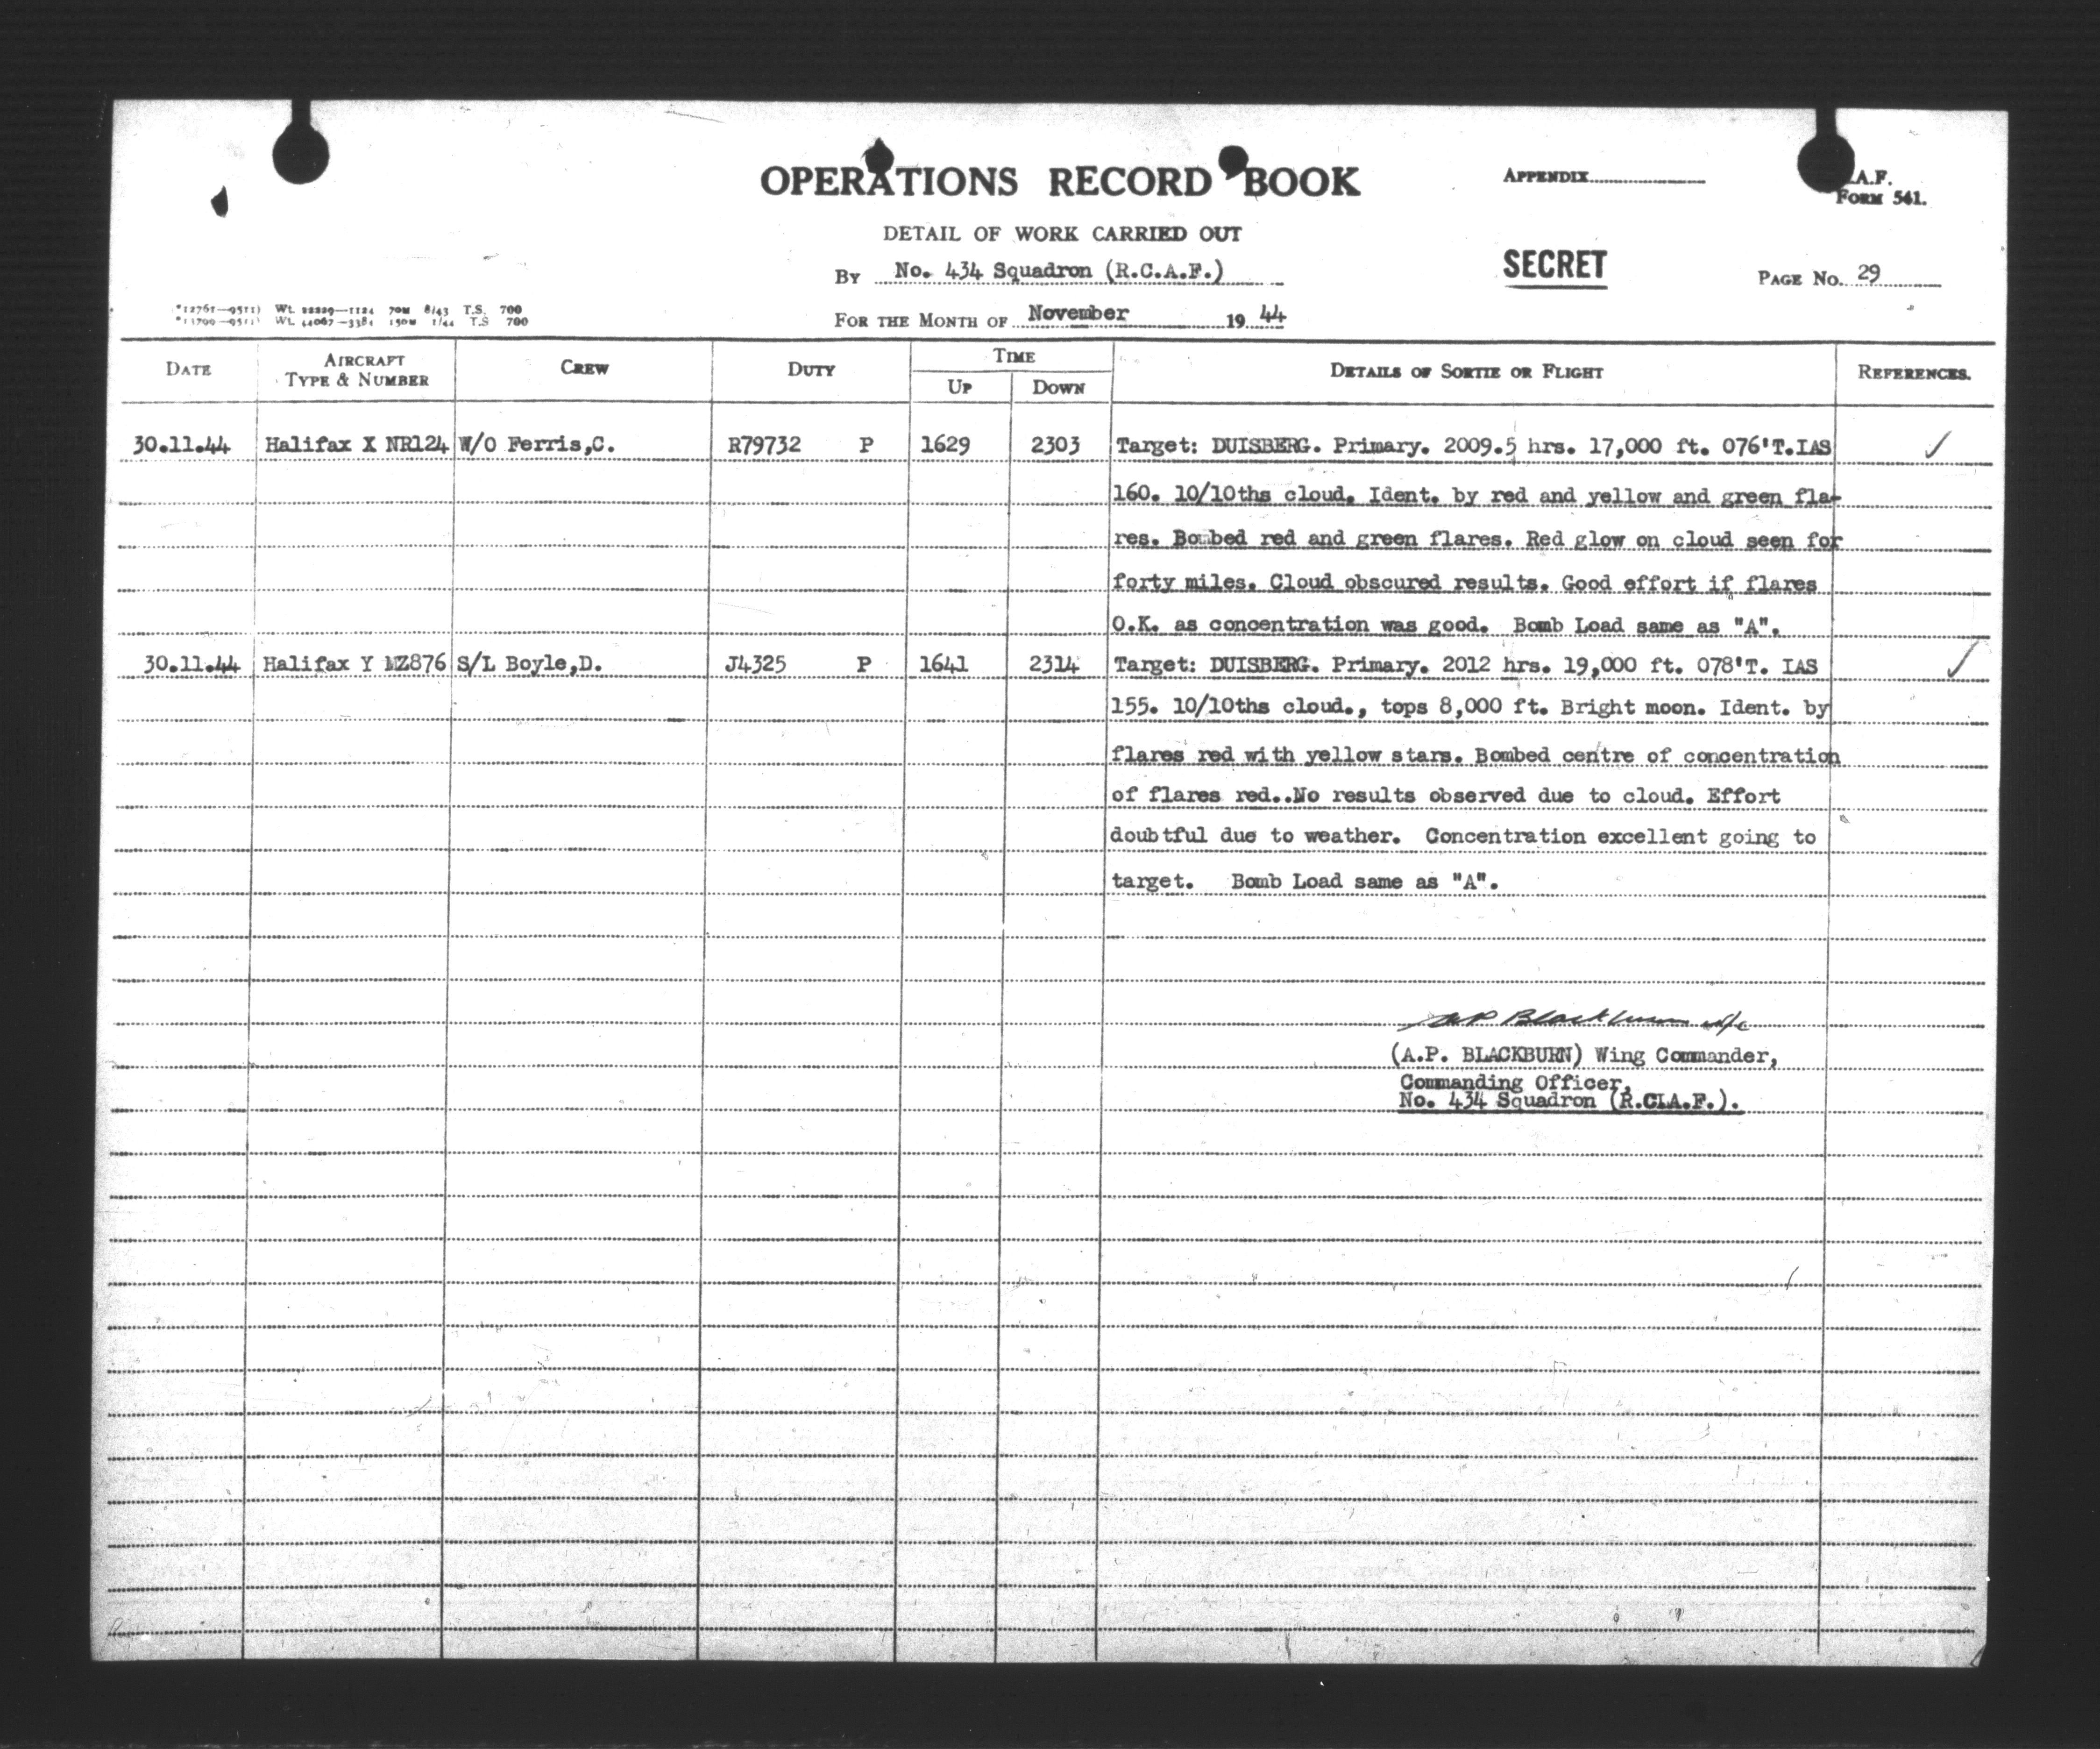 OPERATIONS RECORD BOOK
APPENDIX
.A.F.
FORM 541.
DETAIL OF WORK CARRIED OUT
BY No. 434 Squadron (R.C.A.F.)
SECRET
PAGE No. 29
FOR THE MONTH OF November 19 44
DATE AIRCRAFT TYPE & NUMBER CREW DUTY TIME UP DOWN DETAILS OF SORTIE OR FLIGHT REFERENCES.
30.11.44 Halifax X NR124 W/O Ferris,C. R79732 P 1629 2303 Target: DUISBERG. Primary. 2009.5 hrs. 17,000 ft. 076'T.IAS
160. 10/10ths cloud. Ident. by red and yellow and green fla-
res. Bombed red and green flares. Red glow on cloud seen for
forty miles. Cloud obscured results. Good effort if flares
O.K. as concentration was good. Bomb Load same as "A".
30.11.44 Halifax Y MZ876 S/L Boyle,D. J4325 P 1641 2314 Target: DUISBERG. Primary. 2012 hrs. 19,000 ft. 078'T. IAS
155. 10/10ths cloud., tops 8,000 ft. Bright moon. Ident. by
flares red with yellow stars. Bombed centre of concentration
of flares red..No results observed due to cloud. Effort
doubtful due to weather. Concentration excellent going to
target. Bomb Load same as "A".
AP Blackburn W/C
(A.P. BLACKBURN) Wing Commander,
Commanding Officer,
No. 434 Squadron (R.CIA.F.).